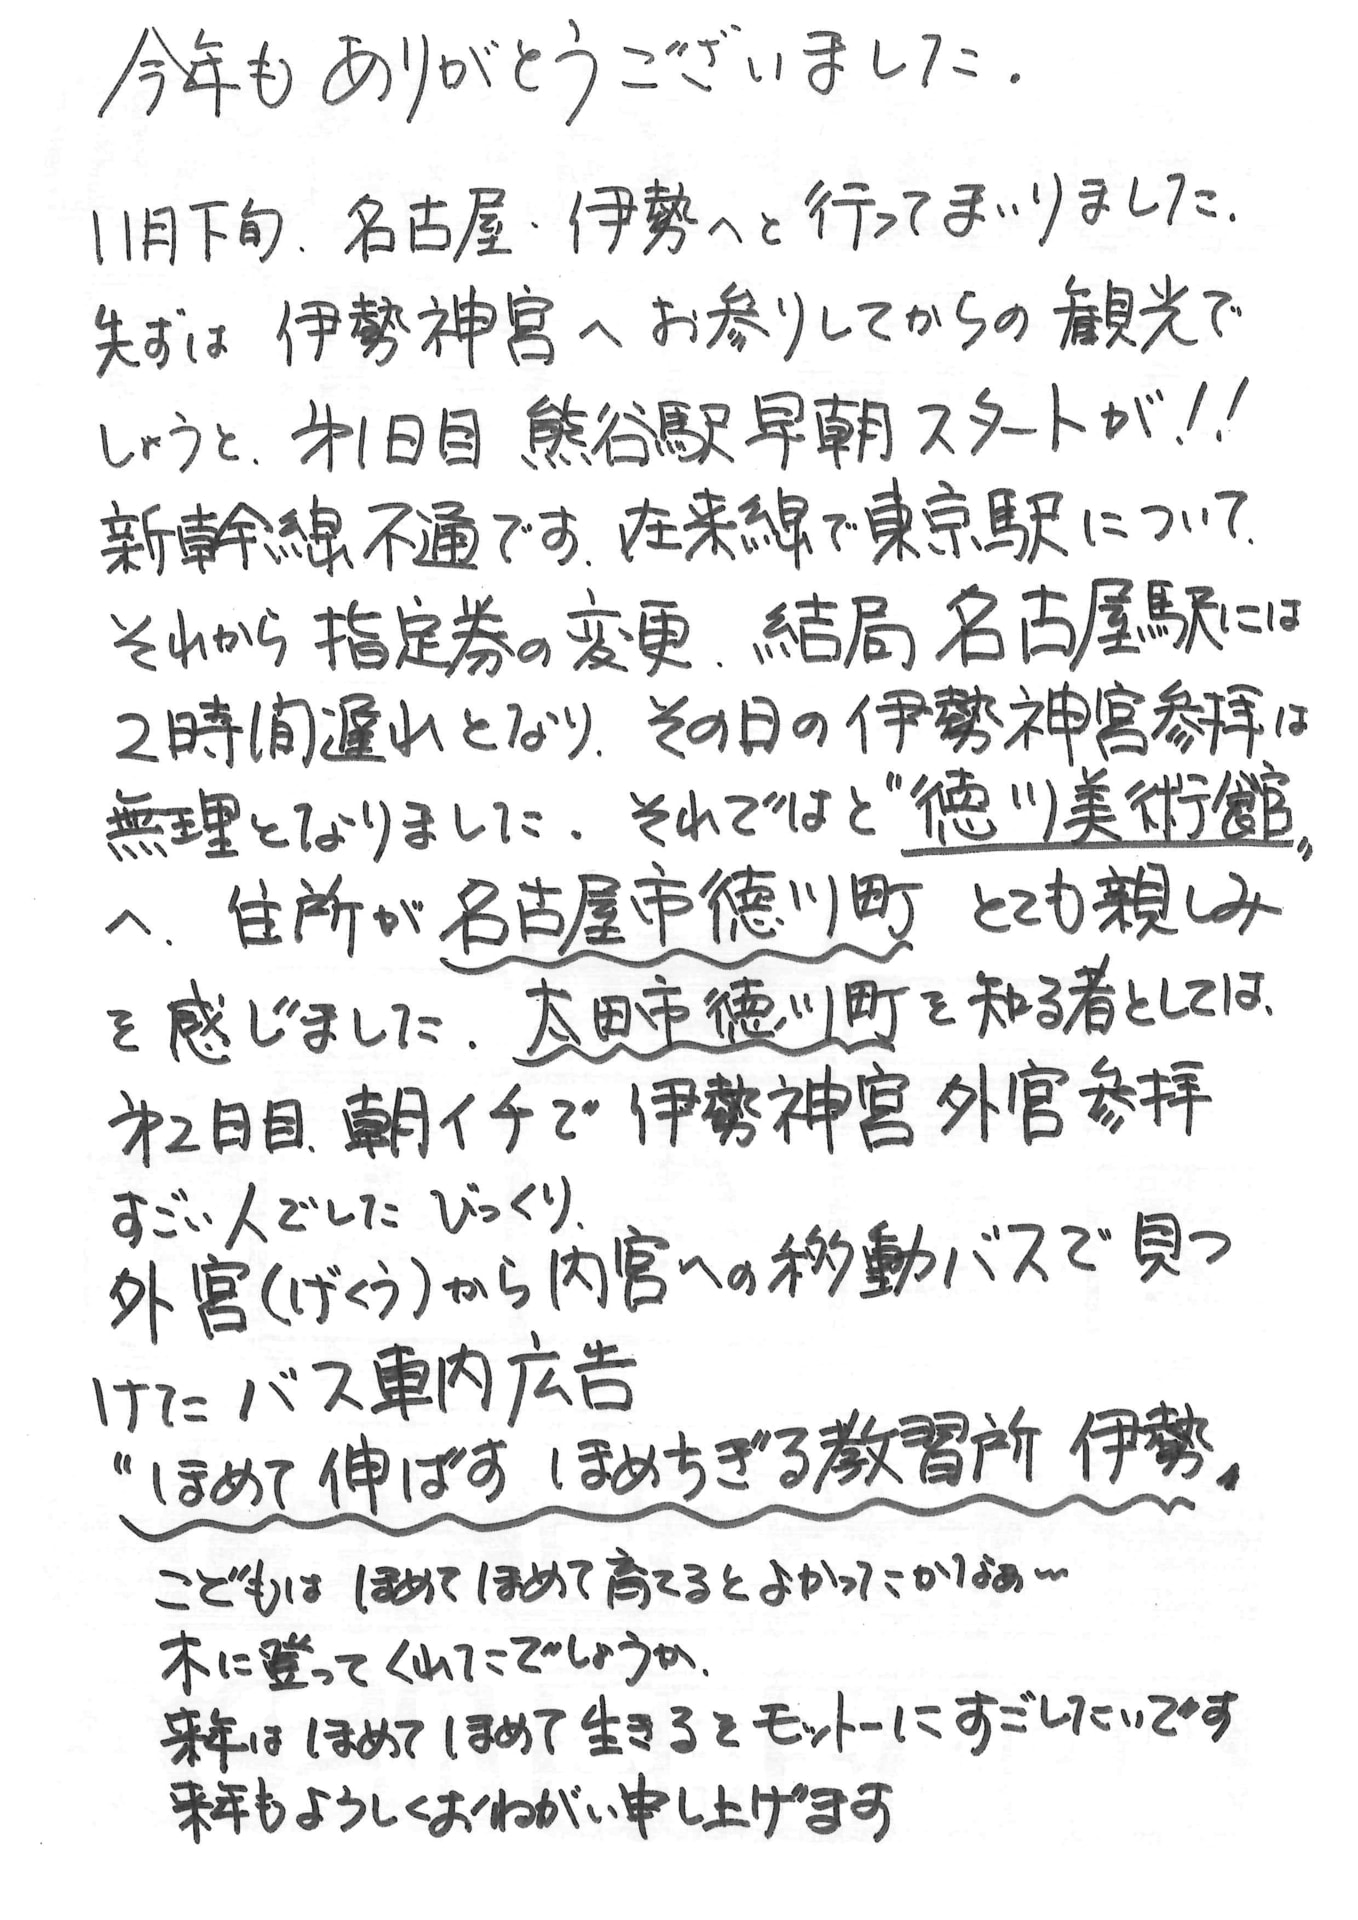 今年も ありがとうございました.
11月下旬. 名古屋・伊勢へと 行ってまいりました.
先ずは 伊勢神宮へ お参りしてからの 観光で
しょうと. 㐧1日目 熊谷駅早朝スタートが!!
新幹線不通です. 在来線で東京駅について.
それから 指定券の変更. 結局 名古屋駅には
2時間遅れとなり. その日の伊勢神宮参拝は
無理となりました. それではと“徳川美術館”
へ. 住所が 名古屋市徳川町 とても親しみ
を 感じました. 太田市徳川町を知る者としては、
㐧2日目. 朝イチで 伊勢神宮 外宮参拝
すごい人でした びっくり.
外宮(げくう)から内宮への移動バスで見つ
けた バス車内広告
“ほめて伸ばす ほめちぎる教習所 伊勢”
こどもは ほめてほめて育てるとよかったかなぁ〜
木に登ってくれたでしょうか.
来年は ほめて ほめて 生きるとモットーにすごしたいです
来年もよろしくおねがい申し上げます